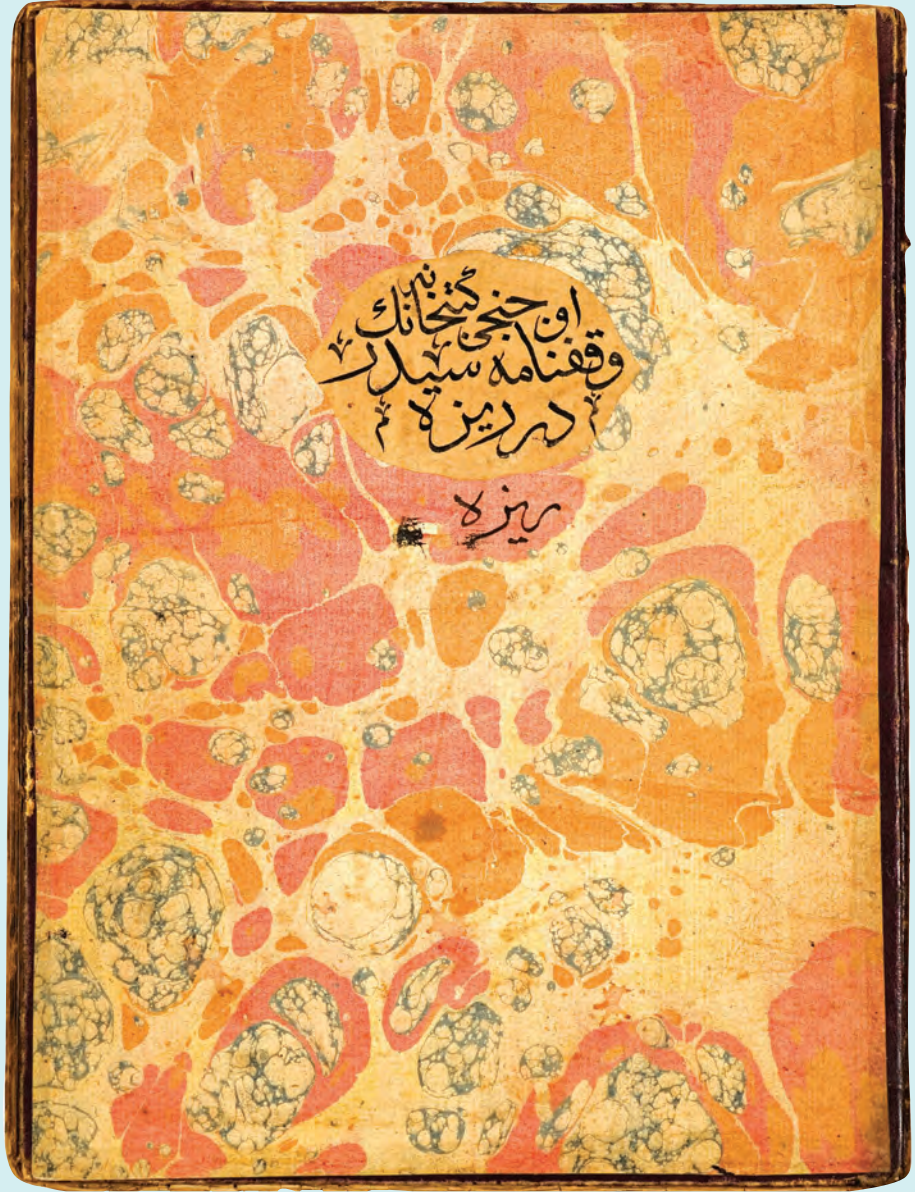 اون جنجی كتبخانه نك
وقفنامه سیدر
در ریزه
ریزه